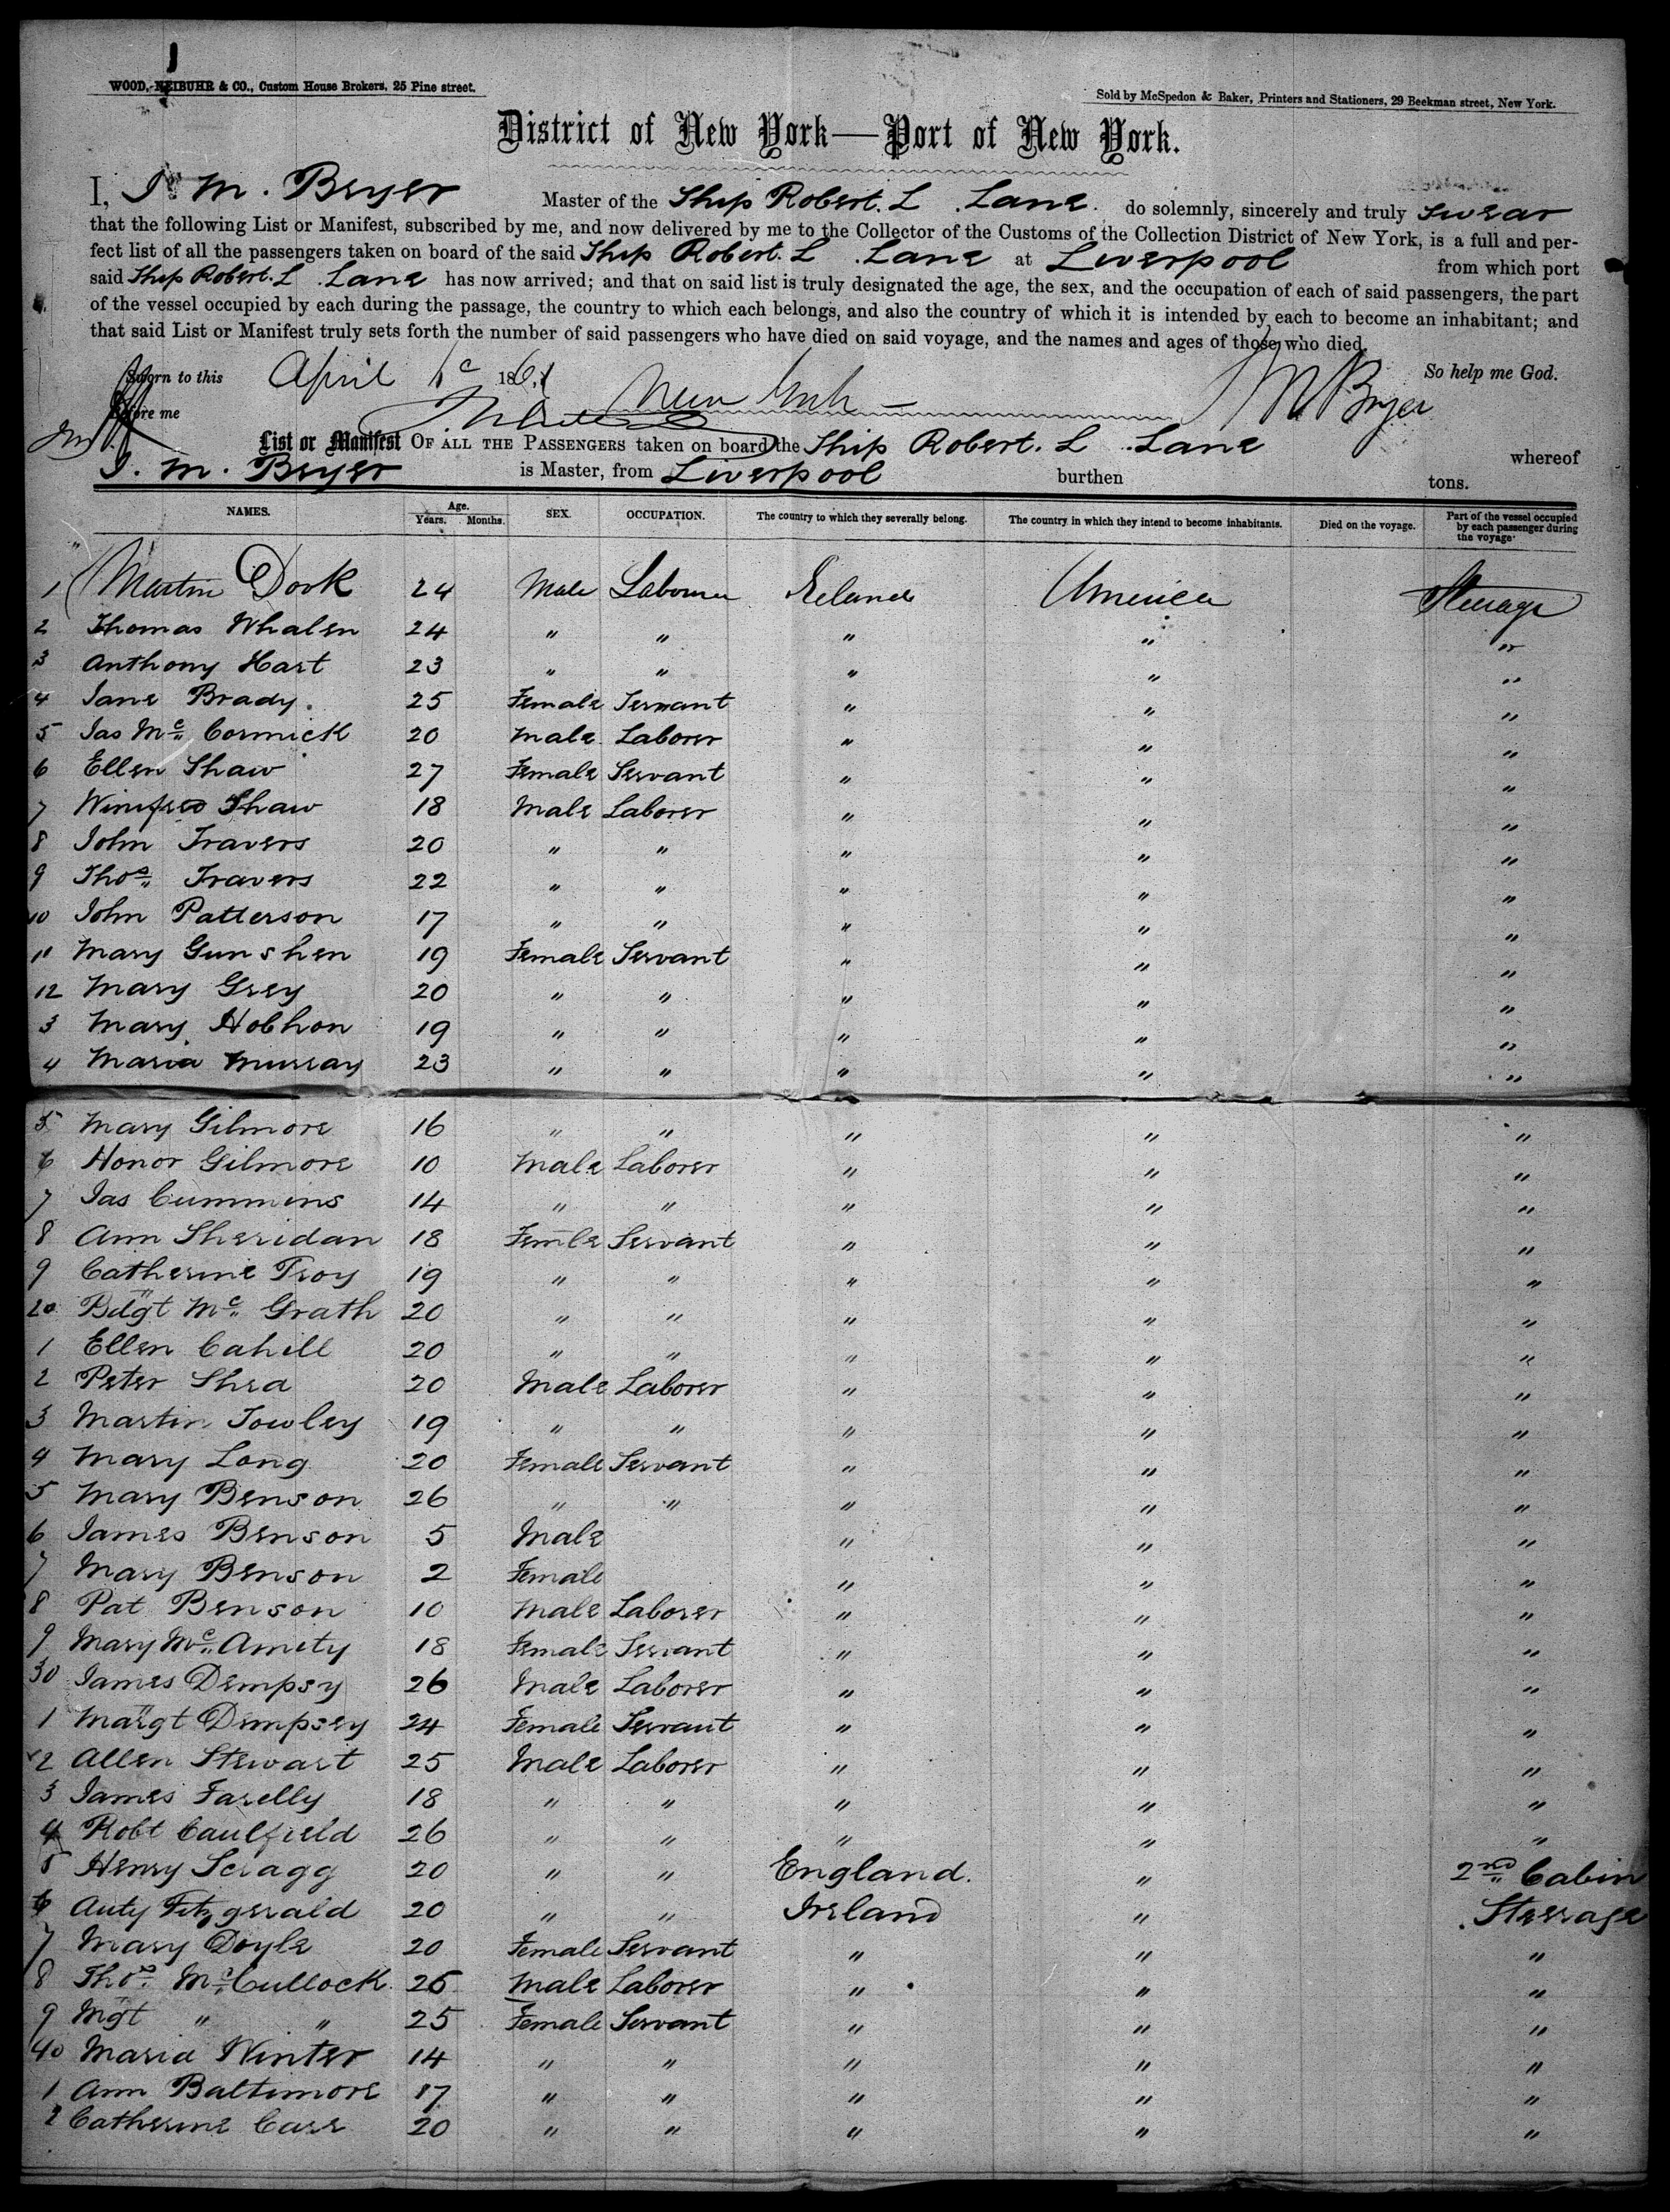 WOOD, NEIBUHR & CO., Custom House Brokers, 25 Pine street.
Sold by McSpedon & Baker, Printers and Stationers, 29 Beekman street, New York.
District of New York—Port of New York.
I, I. M. Bryer Master of the Ship Robert. L. Lane do solemnly, sincerely and truly swear
that the following List or Manifest, subscribed by me, and now delivered by me to the Collector of the Customs of the Collection District of New York, is a full and per-
fect list of all the passengers taken on board of the said Ship Robert. L. Lane at Liverpool from which port
said Ship Robert. L. Lane has now arrived; and that on said list is truly designated the age, the sex, and the occupation of each of said passengers, the part
of the vessel occupied by each during the passage, the country to which each belongs, and also the country of which it is intended by each to become an inhabitant; and
that said List or Manifest truly sets forth the number of said passengers who have died on said voyage, and the names and ages of those who died.
Sworn to this April 186 So help me God.
Before me New York Bryer
List or Manifest OF ALL THE PASSENGERS taken on board the Ship Robert. L. Lane whereof
I. M. Bryer is Master, from Liverpool burthen tons.
NAMES. Age. Years. Months. SEX. OCCUPATION. The country to which they severally belong. The country in which they intend to become inhabitants. Died on the voyage. Part of the vessel occupied by each passenger during the voyage.
1 Martin Dook 24 Male Labourer Ireland America Steerage
2 Thomas Whalen 24 " " " " "
3 Anthony Hart 23 " " " " "
4 Jane Brady. 25 Female Servant " " "
5 Jas Mc Cormick 20 Male Laborer " " "
6 Ellen Shaw 27 Female Servant " " "
7 Winifred Shaw 18 Male Laborer " " "
8 John Travers 20 " " " " "
9 Thos Travers 22 " " " " "
10 John Patterson 17 " " " " "
11 Mary Gunshen 19 Female Servant " " "
12 Mary Grey 20 " " " " "
3 Mary Hobhon 19 " " " " "
4 Maria Murray 23 " " " " "
5 Mary Gilmore 16 " " " " "
6 Honor Gilmore 10 Male Laborer " " "
7 Jas Cummins 14 " " " " "
8 Ann Sheridan 18 Femle Servant " " "
9 Catherine Troy 19 " " " " "
20 Bdgt Mc Grath 20 " " " " "
1 Ellen Cahill 20 " " " " "
2 Peter Shea 20 Male Laborer " " "
3 Martin Towley 19 " " " " "
4 Mary Long 20 Female Servant " " "
5 Mary Benson 26 " " " " "
6 James Benson 5 Male " " "
7 Mary Benson 2 Female " " "
8 Pat Benson 10 Male Laborer " " "
9 Mary Mc Amety 18 Female Servant " " "
30 James Dempsy 26 Male Laborer " " "
1 Margt Dempsey 24 Female Servant " " "
2 Allen Stewart 25 Male Laborer " " "
3 James Farelly 18 " " " " "
4 Robt Caulfield 26 " " " " "
5 Henry Scragg 20 " " England. " 2nd Cabin
6 Auty Fitzgerald 20 " " Ireland " Steerage
7 Mary Doyle 20 Female Servant " " "
8 Thos McCullock 26 Male Laborer " " "
9 Mgt " " 25 Female Servant " " "
40 Maria Winter 14 " " " " "
1 Ann Baltimore 17 " " " " "
2 Catherine Carr 20 " " " " "